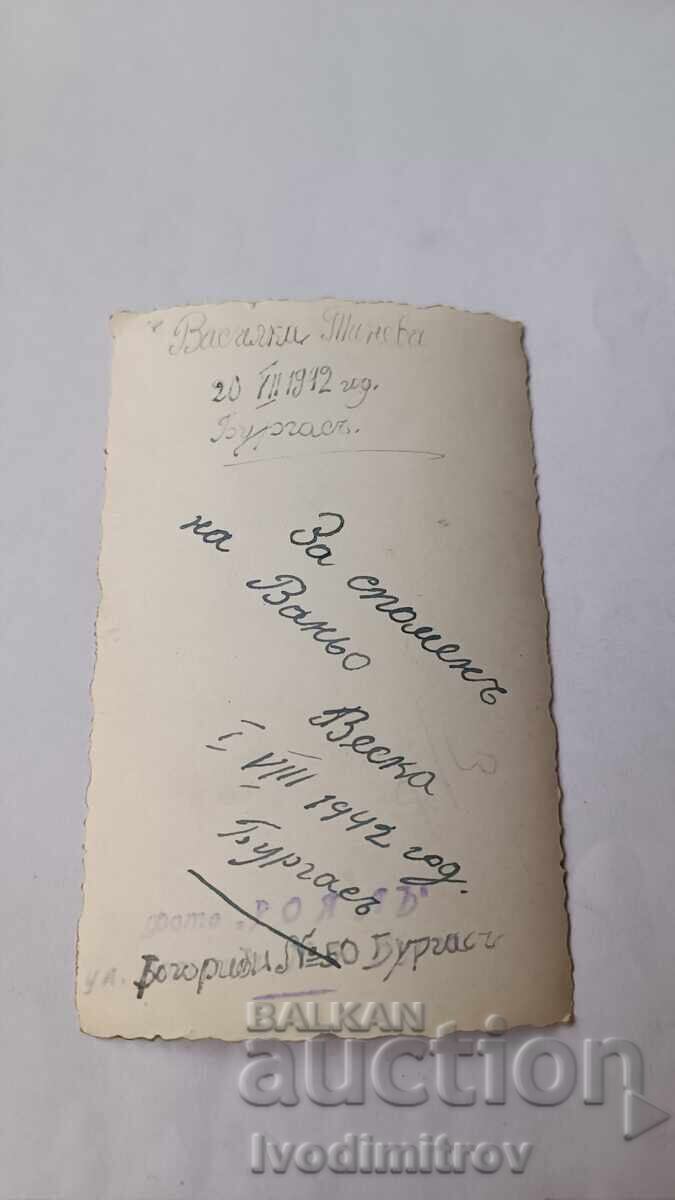 Василки Тинева
20 VII 1942 год.
Бургасъ.
За споменъ
на Ваньо
Веска
I VIII 1942 год.
Бургасъ
фото "РОЯЛЪ"
ул. Богориди №50 Бургасъ
BALKAN
auction
Ivodimitrov